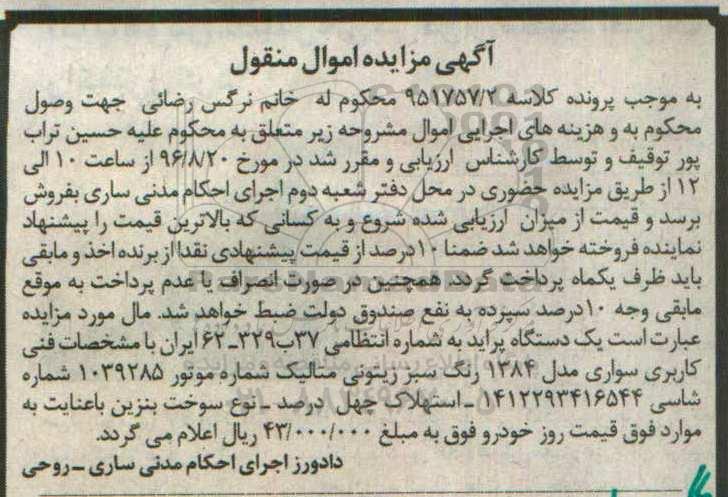 آگهی مزایده اموال منقول
به موجب پرونده کلاسه ۹۵۱۷۵۷/۲ محکوم له خانم نرگس رضائی جهت وصول
محکوم به و هزینه های اجرایی اموال مشروحه زیر متعلق به محکوم علیه حسین تراب
پور توقیف و توسط کارشناس ارزیابی و مقرر شد در مورخ ۹۶/۸/۲۰ از ساعت ۱۰ الی
۱۲ از طریق مزایده حضوری در محل دفتر شعبه دوم اجرای احکام مدنی ساری بفروش
برسد و قیمت از میزان ارزیابی شده شروع و به کسانی که بالاترین قیمت را پیشنهاد
نماینده فروخته خواهد شد ضمنا ۱۰درصد از قیمت پیشنهادی نقدا از برنده اخذ و مابقی
باید ظرف یکماه پرداخت گردد. همچنین در صورت انصراف یا عدم پرداخت به موقع
مابقی وجه ۱۰درصد سپرده به نفع صندوق دولت ضبط خواهد شد. مال مورد مزایده
عبارت است یک دستگاه پراید به شماره انتظامی ۳۷ب۳۲۹ـ۶۲ ایران با مشخصات فنی
کاربری سواری مدل ۱۳۸۴ رنگ سبز زیتونی متالیک شماره موتور ۱۰۳۹۲۸۵ شماره
شاسی ۱۴۱۲۲۹۳۴۱۶۵۴۴ ـ استهلاک چهل درصد ـ نوع سوخت بنزین باعنایت به
موارد فوق قیمت روز خودرو فوق به مبلغ ۴۳/۰۰۰/۰۰۰ ریال اعلام می گردد.
دادورز اجرای احکام مدنی ساری ـ روحی